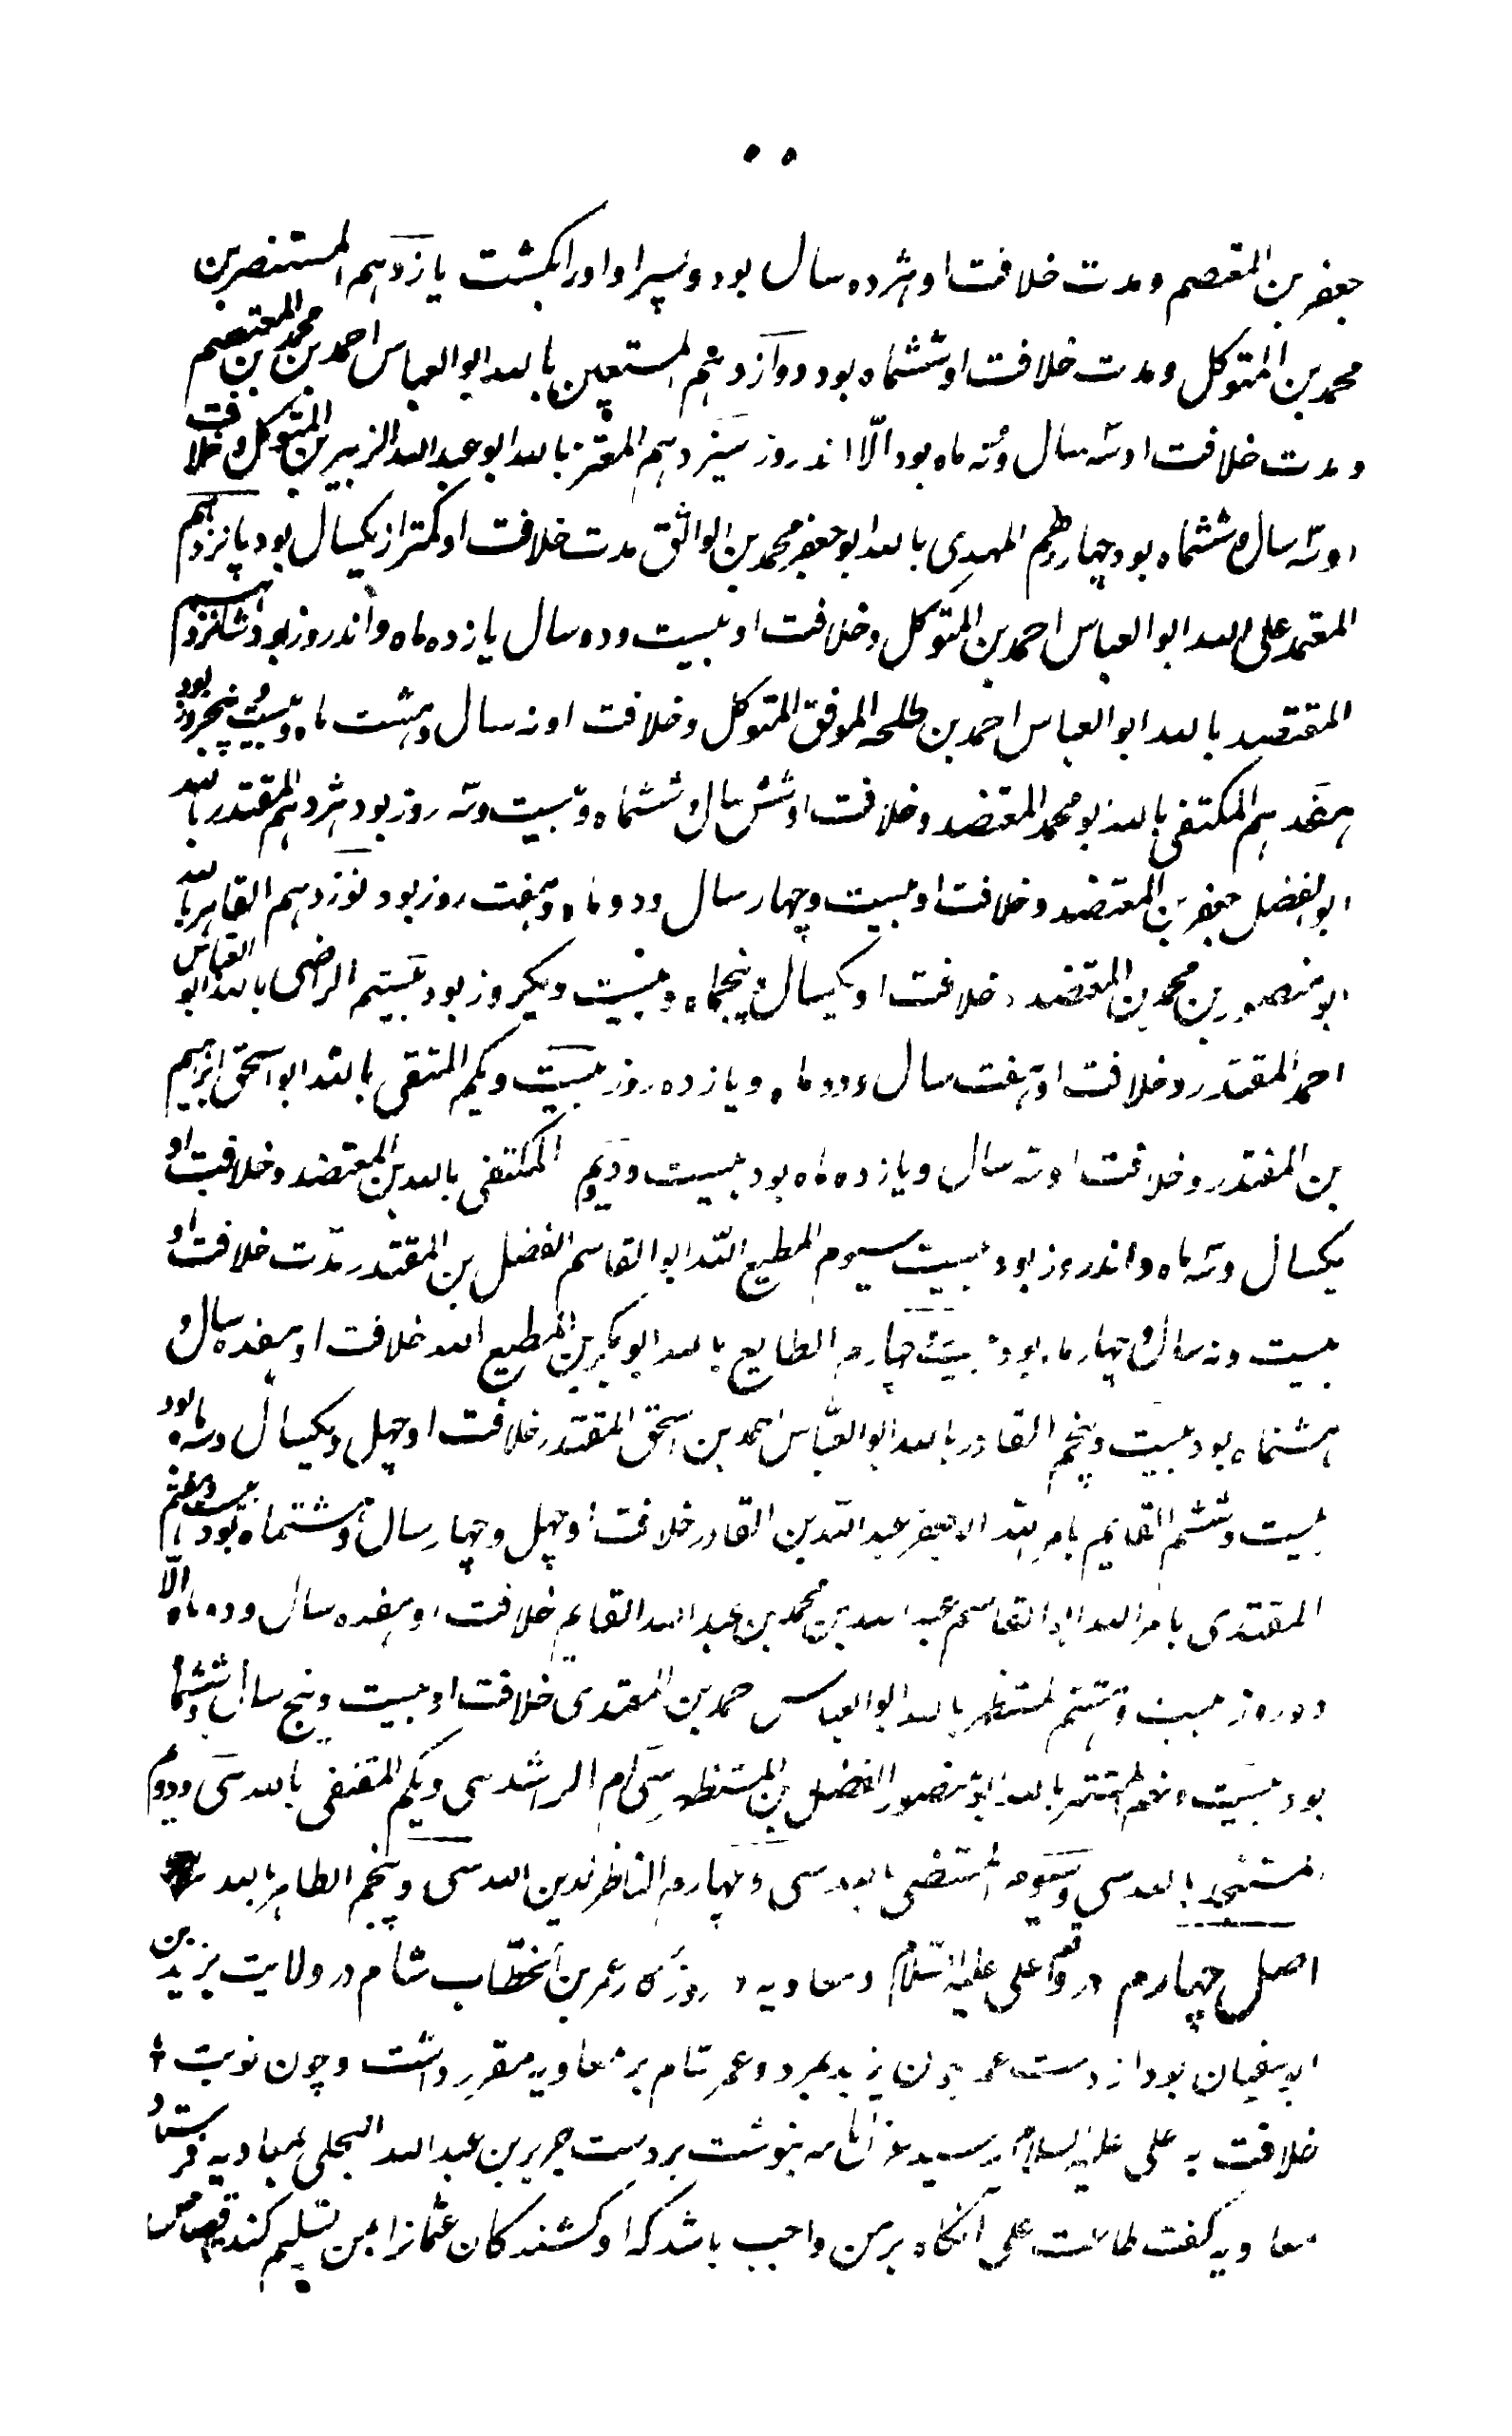 ۵۵
جعفر بن المعتصم ومدت خلافت او هژده سال بود و پسر او اورا بکشت یازدهم المستنصر بن
محمد بن المتوکل ومدت خلافت او ششماه بود دوازدهم المستعین بالله ابوالعباس احمد بن محمد بن المعتصم
ومدت خلافت او سه سال ونه ماه بود الّا اند روز سیزدهم المعتز بالله ابو عبدالله الزبیر بن المتوکل وخلافت
او سه سال و ششماه بود چهاردهم المهدی بالله ابو جعفر محمد بن الواثق مدت خلافت او کمتر از یکسال بود پانزدهم
المعتمد علی الله ابو العباس احمد بن المتوکل وخلافت او بیست ودو سال یازده ماه واند روز بود شانزدهم
المعتضد بالله ابو العباس احمد بن طلحه الموفق المتوکل وخلافت او نه سال وهشت ماه وبیست پنجروز بود
هفدهم المکتفی بالله ابو محمد المعتضد وخلافت او شش سال وششماه وبیست وسه روز بود هژدهم المقتدر بالله
ابو الفضل جعفر بن المعتضد وخلافت او بیست وچهار سال ودو ماه وهفت روز بود نوزدهم القاهر بالله
ابو منصور بن محمد بن المعتضد وخلافت او یکسال وپنجماه وبیست ویکروز بود بیستم الراضی بالله ابو العباس
احمد المقتدر وخلافت او هفت سال ودو ماه ویازده روز بیست ویکم المتقی بالله ابو اسحق ابراهیم
بن المقتدر وخلافت او سه سال ویازده ماه بود بیست ودویم المکتفی بالله بن المعتضد وخلافت او
یکسال وسه ماه واند روز بود بیست سیوم المطیع الله ابو القاسم الفضل بن المقتدر مدّت خلافت او
بیست ونه سال وچهار ماه بود بیست چهارم الطایع بالله ابوبکر بن المطیع الله خلافت او هفده سال و
هشتماه بود بیست وپنجم القادر بالله ابو العبّاس احمد بن اسحق المقتدر خلافت او چهل ویکسال وسه ماه بود
بیست وششم القایم بامر الله ابو جعفر عبدالله بن القادر خلافت او چهل وچهار سال وهشتماه بود بیست وهفتم
المقتدی بامر الله ابو القاسم عبد الله بن محمد بن عبد الله القایم خلافت او هفده سال وده ماه الّا
دو روز بیست وهشتم المستظهر بالله ابو العباس احمد بن المقتدی خلافت او بیست وپنج سال وششماه
بود بیست ونهم بالله ابو منصور الفضل بن المستظهر سی ام الراشد سی ویکم المقتفی بالله سی ودوم
المستنجد بالله سی وسیوم المستضی بالله سی وچهارم الناظر لدین الله سی وپنجم الطاهر بالله
اصل چهارم در علی علیه السّلام ومعاویه در روزگار عمر بن الخطّاب شام در ولایت یزید بن
ابی سفیان بود از دست عمر چون یزید بمرد وعمر شام بر معاویه مقرر داشت وچون نوبت
خلافت به علی علیه السلام رسید نامه بنوشت بر دست جریر بن عبد الله البجلی بمعاویه فرستاد
معاویه کفت طاعت علی انکاه بر من واجب باشد که او کشندکان عثمانرا بمن تسلیم کند قصاص